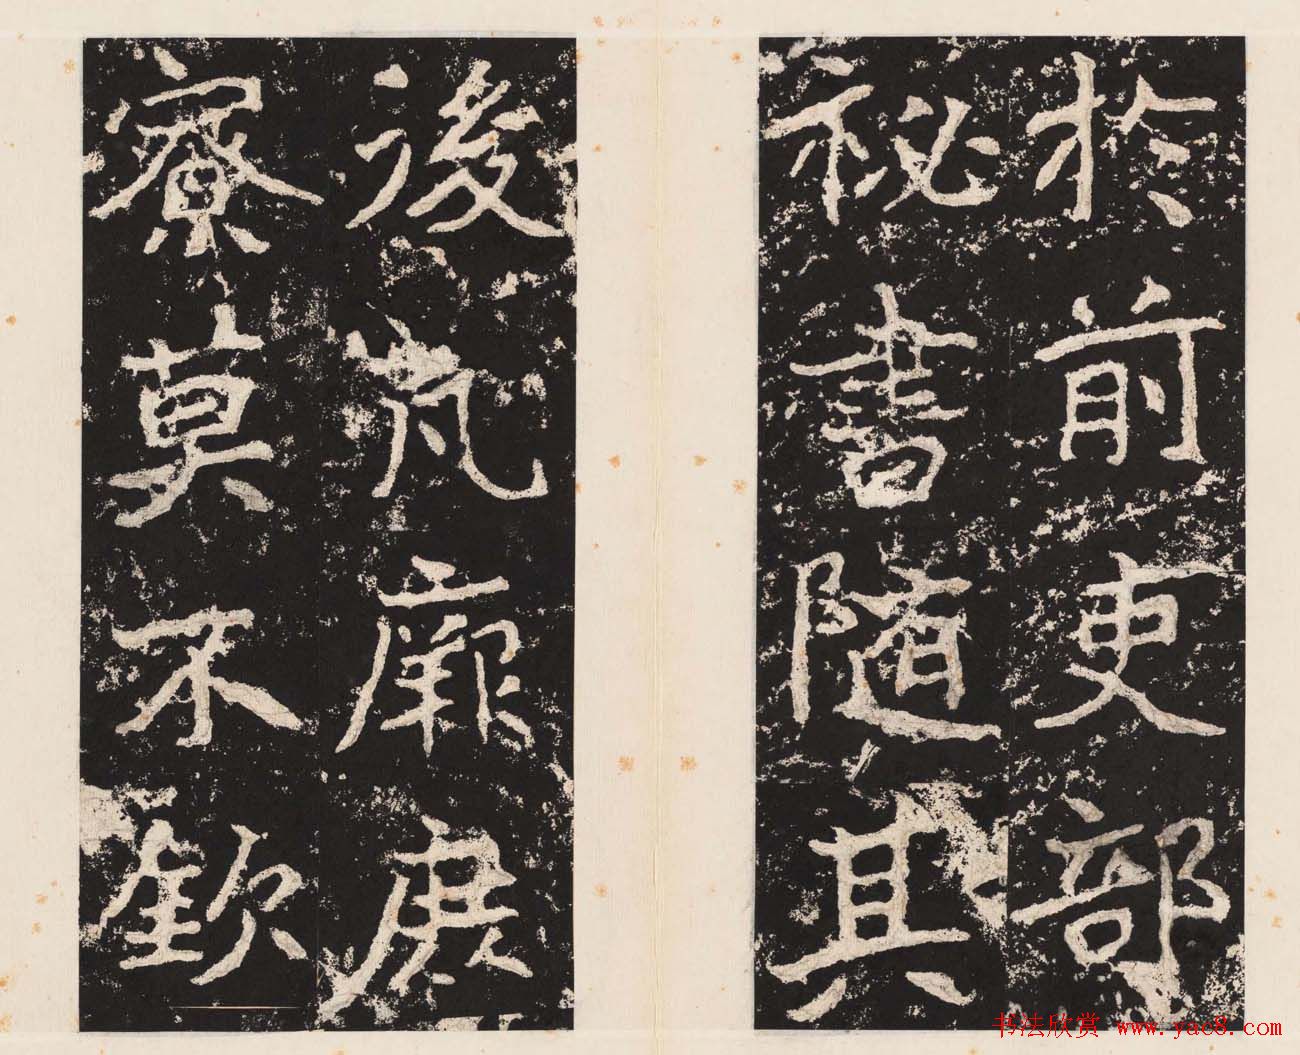 於前吏部
秘書隨其
後凡厥庶
寮莫不歡
书法欣赏 www.yac8.com